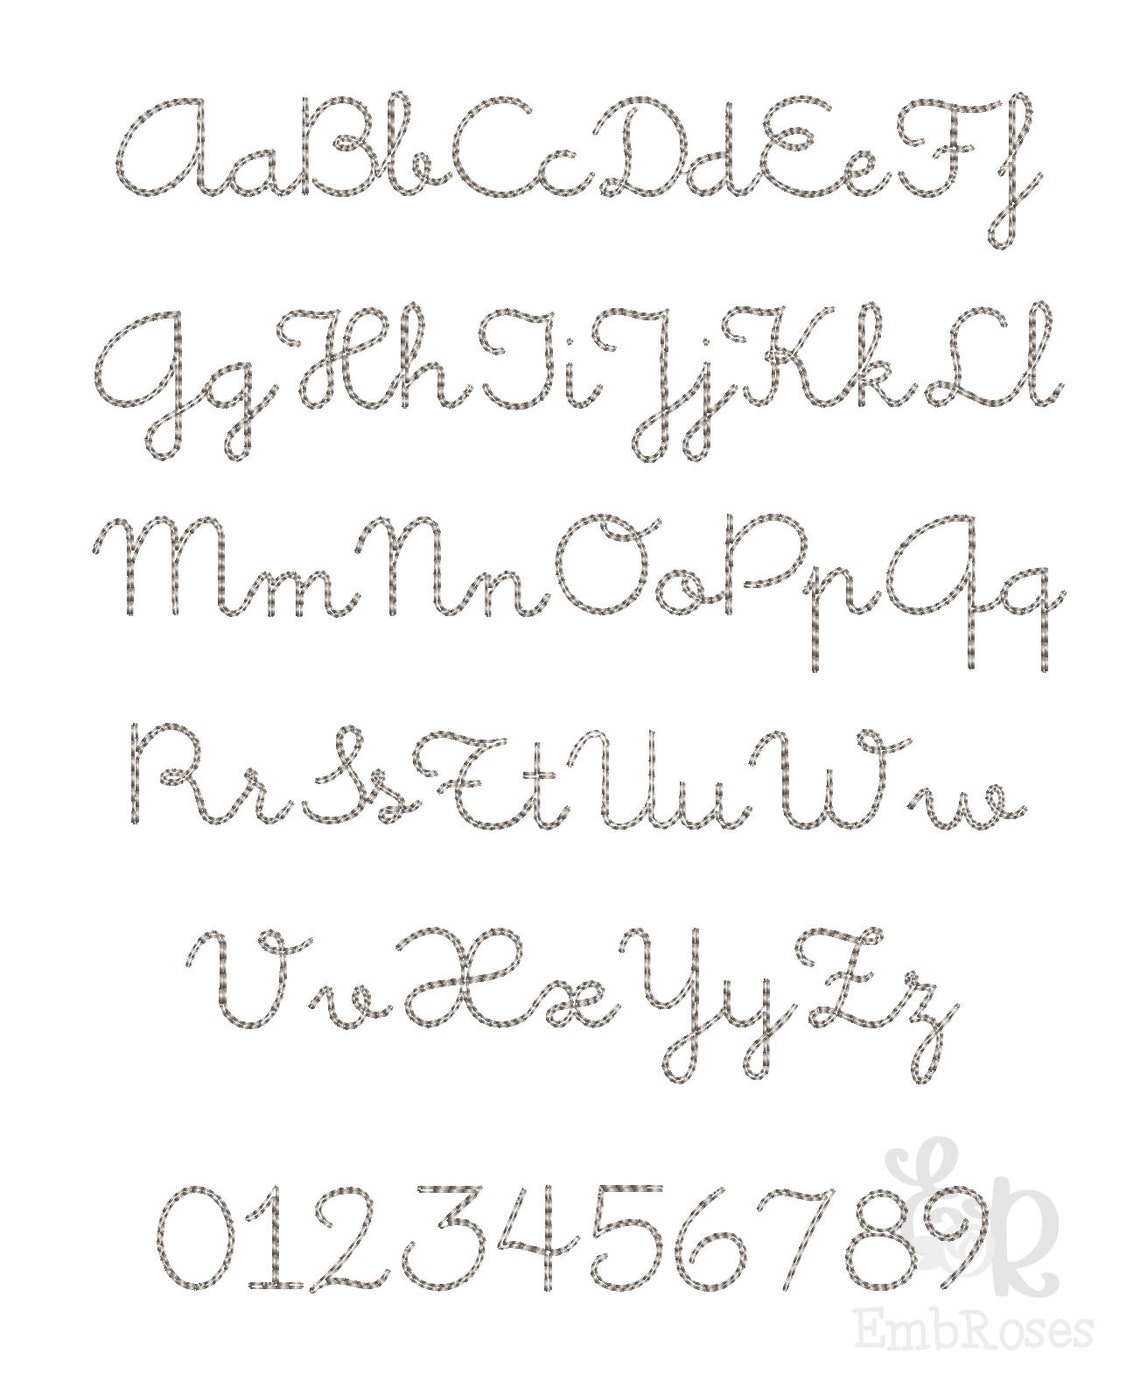 AaBbCcDdEeFf
GgHhIiJjKkLl
MmNnOoPpQq
RrSsTtUuWw
VvXxYyZz
0123456789
ER
EmbRoses